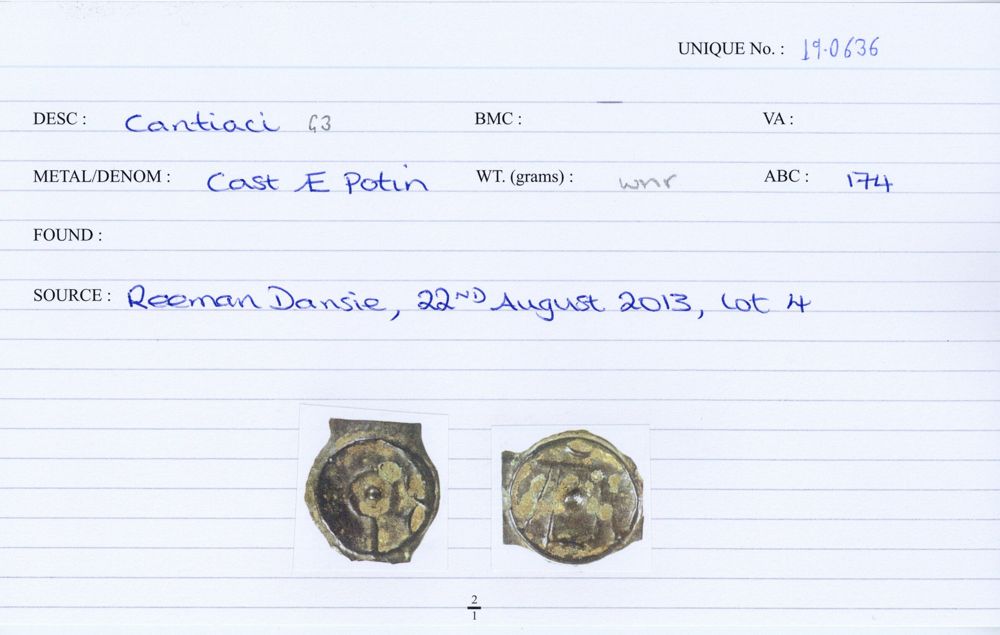 UNIQUE No. : 19.0636
DESC : Cantiaci G3 BMC : VA :
METAL/DENOM : Cast Æ Potin WT. (grams) : wnr ABC : 174
FOUND :
SOURCE : Reeman Dansie, 22ND August 2013, Lot 4
2
1